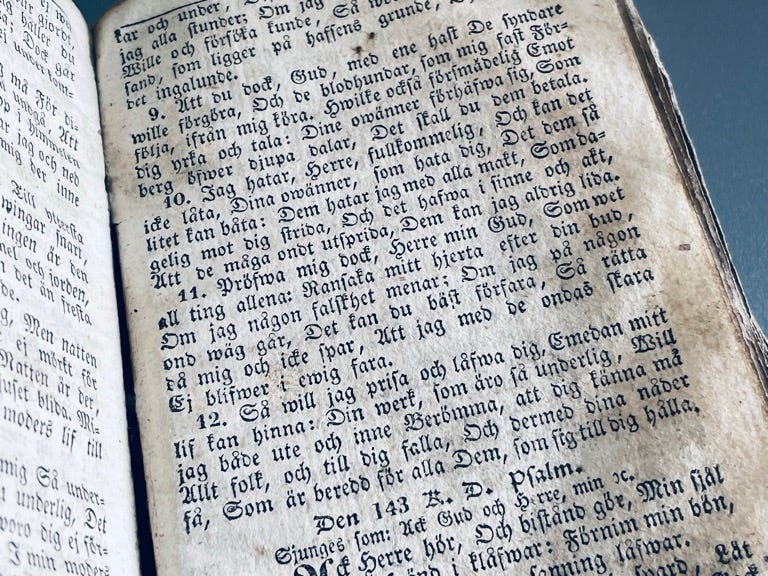 gjordt,
håller du
Dock går
må För di-
Att
himmelen
jag och ned
mig der inne
Till yttersta
wingar snart,
ingen är den
och jorden,
det än fresta
Men natten
ej mörkt för
Natten är der,
ljuset blida. Mi-
moders lif till
mig Så under-
underlig, Det
woro dig ej för-
I min moders
kar och under,
jag alla stunder; Om jag
Wille och försöka kunde, Så
sand, som ligger på hafsens grunde,
det ingalunde.
9. Att du dock, Gud, med ene hast De syndare
wille förgöra, Och de blodhundar, som mig fast För-
följa, ifrån mig köra. Hwilke också försmädelig Emot
dig yrka och tala: Dine owänner förhäfwa sig, Som
berg öfwer djupa dalar, Det skall du dem betala.
10. Jag hatar, Herre, fullkommelig, Och kan det
icke låta, Dina owänner, som hata dig, Det dem så
litet kan båta: Dem hatar jag med alla makt, Som da-
gelig mot dig strida, Och det hafwa i sinne och akt,
Att de måga ondt utsprida, Dem kan jag aldrig lida.
11. Pröfwa mig dock, Herre min Gud, Som wet
all ting allena: Ransaka mitt hjerta efter din bud,
Om jag någon falskhet menar; Om jag på någon
ond wäg går, Det kan du bäst förfara, Så rätta
då mig och icke spar, Att jag med de ondas skara
Ej blifwer ewig fara.
12. Så will jag prisa och låfwa dig, Emedan mitt
lif kan hinna: Din werk, som äro så underlig, Will
jag både ute och inne Berömma, att dig känna må
Allt folk, och till dig falla, Och dermed dina nåder
få, Som är beredd för alla Dem, som sig till dig hålla.
Den 143 K. D. Psalm.
Sjunges som: Ack Gud och Herre, min ꝛc.
Ack Herre hör, Och bistånd gör, Min själ
i klåfwar: Förnim min bön,
sanning låfwar.